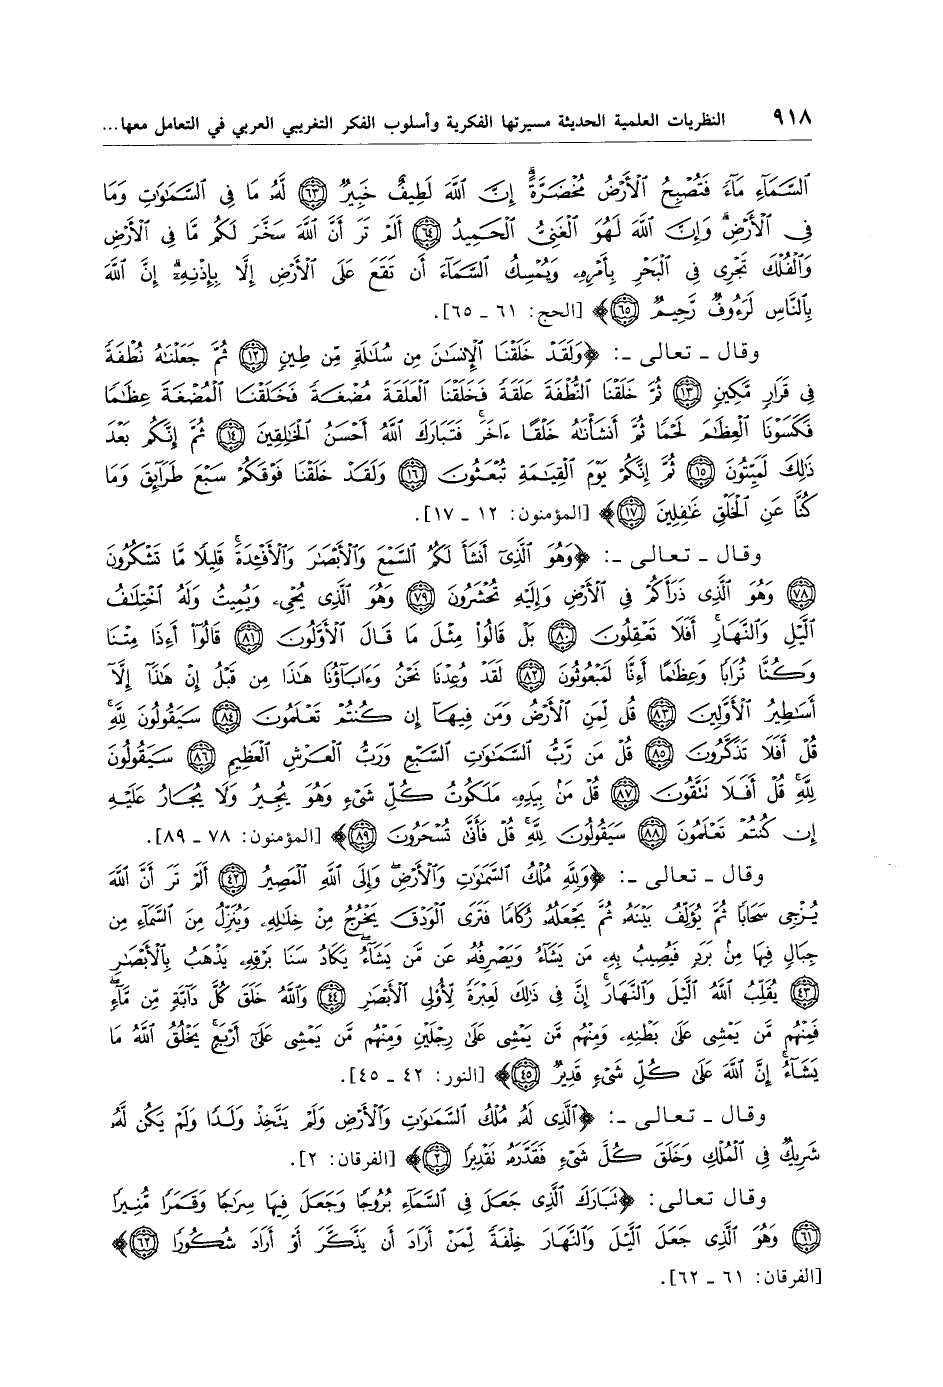 ٩١٨ النظريات العلمية الحديثة مسيرتها الفكرية وأسلوب الفكر التغريبي العربي في التعامل معها...
ٱلسَّمَآءِ مَآءً فَتُصْبِحُ ٱلْأَرْضُ مُخْضَرَّةً ۗ إِنَّ ٱللَّهَ لَطِيفٌ خَبِيرٌ ﴿٦٣﴾ لَّهُۥ مَا فِى ٱلسَّمَٰوَٰتِ وَمَا
فِى ٱلْأَرْضِ ۗ وَإِنَّ ٱللَّهَ لَهُوَ ٱلْغَنِىُّ ٱلْحَمِيدُ ﴿٦٤﴾ أَلَمْ تَرَ أَنَّ ٱللَّهَ سَخَّرَ لَكُم مَّا فِى ٱلْأَرْضِ
وَٱلْفُلْكَ تَجْرِى فِى ٱلْبَحْرِ بِأَمْرِهِۦ وَيُمْسِكُ ٱلسَّمَآءَ أَن تَقَعَ عَلَى ٱلْأَرْضِ إِلَّا بِإِذْنِهِۦٓ ۗ إِنَّ ٱللَّهَ
بِٱلنَّاسِ لَرَءُوفٌ رَّحِيمٌ ﴿٦٥﴾﴾ [الحج: ٦١ ـ ٦٥].
وقال ـ تعالى ـ: ﴿وَلَقَدْ خَلَقْنَا ٱلْإِنسَٰنَ مِن سُلَٰلَةٍ مِّن طِينٍ ﴿١٢﴾ ثُمَّ جَعَلْنَٰهُ نُطْفَةً
فِى قَرَارٍ مَّكِينٍ ﴿١٣﴾ ثُمَّ خَلَقْنَا ٱلنُّطْفَةَ عَلَقَةً فَخَلَقْنَا ٱلْعَلَقَةَ مُضْغَةً فَخَلَقْنَا ٱلْمُضْغَةَ عِظَٰمًا
فَكَسَوْنَا ٱلْعِظَٰمَ لَحْمًا ثُمَّ أَنشَأْنَٰهُ خَلْقًا ءَاخَرَ ۚ فَتَبَارَكَ ٱللَّهُ أَحْسَنُ ٱلْخَٰلِقِينَ ﴿١٤﴾ ثُمَّ إِنَّكُم بَعْدَ
ذَٰلِكَ لَمَيِّتُونَ ﴿١٥﴾ ثُمَّ إِنَّكُمْ يَوْمَ ٱلْقِيَٰمَةِ تُبْعَثُونَ ﴿١٦﴾ وَلَقَدْ خَلَقْنَا فَوْقَكُمْ سَبْعَ طَرَآئِقَ وَمَا
كُنَّا عَنِ ٱلْخَلْقِ غَٰفِلِينَ ﴿١٧﴾﴾ [المؤمنون: ١٢ ـ ١٧].
وقال ـ تعالى ـ: ﴿وَهُوَ ٱلَّذِىٓ أَنشَأَ لَكُمُ ٱلسَّمْعَ وَٱلْأَبْصَٰرَ وَٱلْأَفْـِٔدَةَ ۚ قَلِيلًا مَّا تَشْكُرُونَ
﴿٧٨﴾ وَهُوَ ٱلَّذِى ذَرَأَكُمْ فِى ٱلْأَرْضِ وَإِلَيْهِ تُحْشَرُونَ ﴿٧٩﴾ وَهُوَ ٱلَّذِى يُحْىِۦ وَيُمِيتُ وَلَهُ ٱخْتِلَٰفُ
ٱلَّيْلِ وَٱلنَّهَارِ ۚ أَفَلَا تَعْقِلُونَ ﴿٨٠﴾ بَلْ قَالُوا۟ مِثْلَ مَا قَالَ ٱلْأَوَّلُونَ ﴿٨١﴾ قَالُوٓا۟ أَءِذَا مِتْنَا
وَكُنَّا تُرَابًا وَعِظَٰمًا أَءِنَّا لَمَبْعُوثُونَ ﴿٨٢﴾ لَقَدْ وُعِدْنَا نَحْنُ وَءَابَآؤُنَا هَٰذَا مِن قَبْلُ إِنْ هَٰذَآ إِلَّآ
أَسَٰطِيرُ ٱلْأَوَّلِينَ ﴿٨٣﴾ قُل لِّمَنِ ٱلْأَرْضُ وَمَن فِيهَآ إِن كُنتُمْ تَعْلَمُونَ ﴿٨٤﴾ سَيَقُولُونَ لِلَّهِ ۚ
قُلْ أَفَلَا تَذَكَّرُونَ ﴿٨٥﴾ قُلْ مَن رَّبُّ ٱلسَّمَٰوَٰتِ ٱلسَّبْعِ وَرَبُّ ٱلْعَرْشِ ٱلْعَظِيمِ ﴿٨٦﴾ سَيَقُولُونَ
لِلَّهِ ۚ قُلْ أَفَلَا تَتَّقُونَ ﴿٨٧﴾ قُلْ مَنۢ بِيَدِهِۦ مَلَكُوتُ كُلِّ شَىْءٍ وَهُوَ يُجِيرُ وَلَا يُجَارُ عَلَيْهِ
إِن كُنتُمْ تَعْلَمُونَ ﴿٨٨﴾ سَيَقُولُونَ لِلَّهِ ۚ قُلْ فَأَنَّىٰ تُسْحَرُونَ ﴿٨٩﴾﴾ [المؤمنون: ٧٨ ـ ٨٩].
وقال ـ تعالى ـ: ﴿وَلِلَّهِ مُلْكُ ٱلسَّمَٰوَٰتِ وَٱلْأَرْضِ ۖ وَإِلَى ٱللَّهِ ٱلْمَصِيرُ ﴿٤٢﴾ أَلَمْ تَرَ أَنَّ ٱللَّهَ
يُزْجِى سَحَابًا ثُمَّ يُؤَلِّفُ بَيْنَهُۥ ثُمَّ يَجْعَلُهُۥ رُكَامًا فَتَرَى ٱلْوَدْقَ يَخْرُجُ مِنْ خِلَٰلِهِۦ وَيُنَزِّلُ مِنَ ٱلسَّمَآءِ مِن
جِبَالٍ فِيهَا مِنۢ بَرَدٍ فَيُصِيبُ بِهِۦ مَن يَشَآءُ وَيَصْرِفُهُۥ عَن مَّن يَشَآءُ ۖ يَكَادُ سَنَا بَرْقِهِۦ يَذْهَبُ بِٱلْأَبْصَٰرِ
﴿٤٣﴾ يُقَلِّبُ ٱللَّهُ ٱلَّيْلَ وَٱلنَّهَارَ ۚ إِنَّ فِى ذَٰلِكَ لَعِبْرَةً لِّأُو۟لِى ٱلْأَبْصَٰرِ ﴿٤٤﴾ وَٱللَّهُ خَلَقَ كُلَّ دَآبَّةٍ مِّن مَّآءٍ ۖ
فَمِنْهُم مَّن يَمْشِى عَلَىٰ بَطْنِهِۦ وَمِنْهُم مَّن يَمْشِى عَلَىٰ رِجْلَيْنِ وَمِنْهُم مَّن يَمْشِى عَلَىٰٓ أَرْبَعٍ ۚ يَخْلُقُ ٱللَّهُ مَا
يَشَآءُ ۚ إِنَّ ٱللَّهَ عَلَىٰ كُلِّ شَىْءٍ قَدِيرٌ ﴿٤٥﴾﴾ [النور: ٤٢ ـ ٤٥].
وقال ـ تعالى ـ: ﴿ٱلَّذِى لَهُۥ مُلْكُ ٱلسَّمَٰوَٰتِ وَٱلْأَرْضِ وَلَمْ يَتَّخِذْ وَلَدًا وَلَمْ يَكُن لَّهُۥ
شَرِيكٌ فِى ٱلْمُلْكِ وَخَلَقَ كُلَّ شَىْءٍ فَقَدَّرَهُۥ تَقْدِيرًا ﴿٢﴾﴾ [الفرقان: ٢].
وقال تعالى: ﴿تَبَارَكَ ٱلَّذِى جَعَلَ فِى ٱلسَّمَآءِ بُرُوجًا وَجَعَلَ فِيهَا سِرَٰجًا وَقَمَرًا مُّنِيرًا
﴿٦١﴾ وَهُوَ ٱلَّذِى جَعَلَ ٱلَّيْلَ وَٱلنَّهَارَ خِلْفَةً لِّمَنْ أَرَادَ أَن يَذَّكَّرَ أَوْ أَرَادَ شُكُورًا ﴿٦٢﴾﴾
[الفرقان: ٦١ ـ ٦٢].